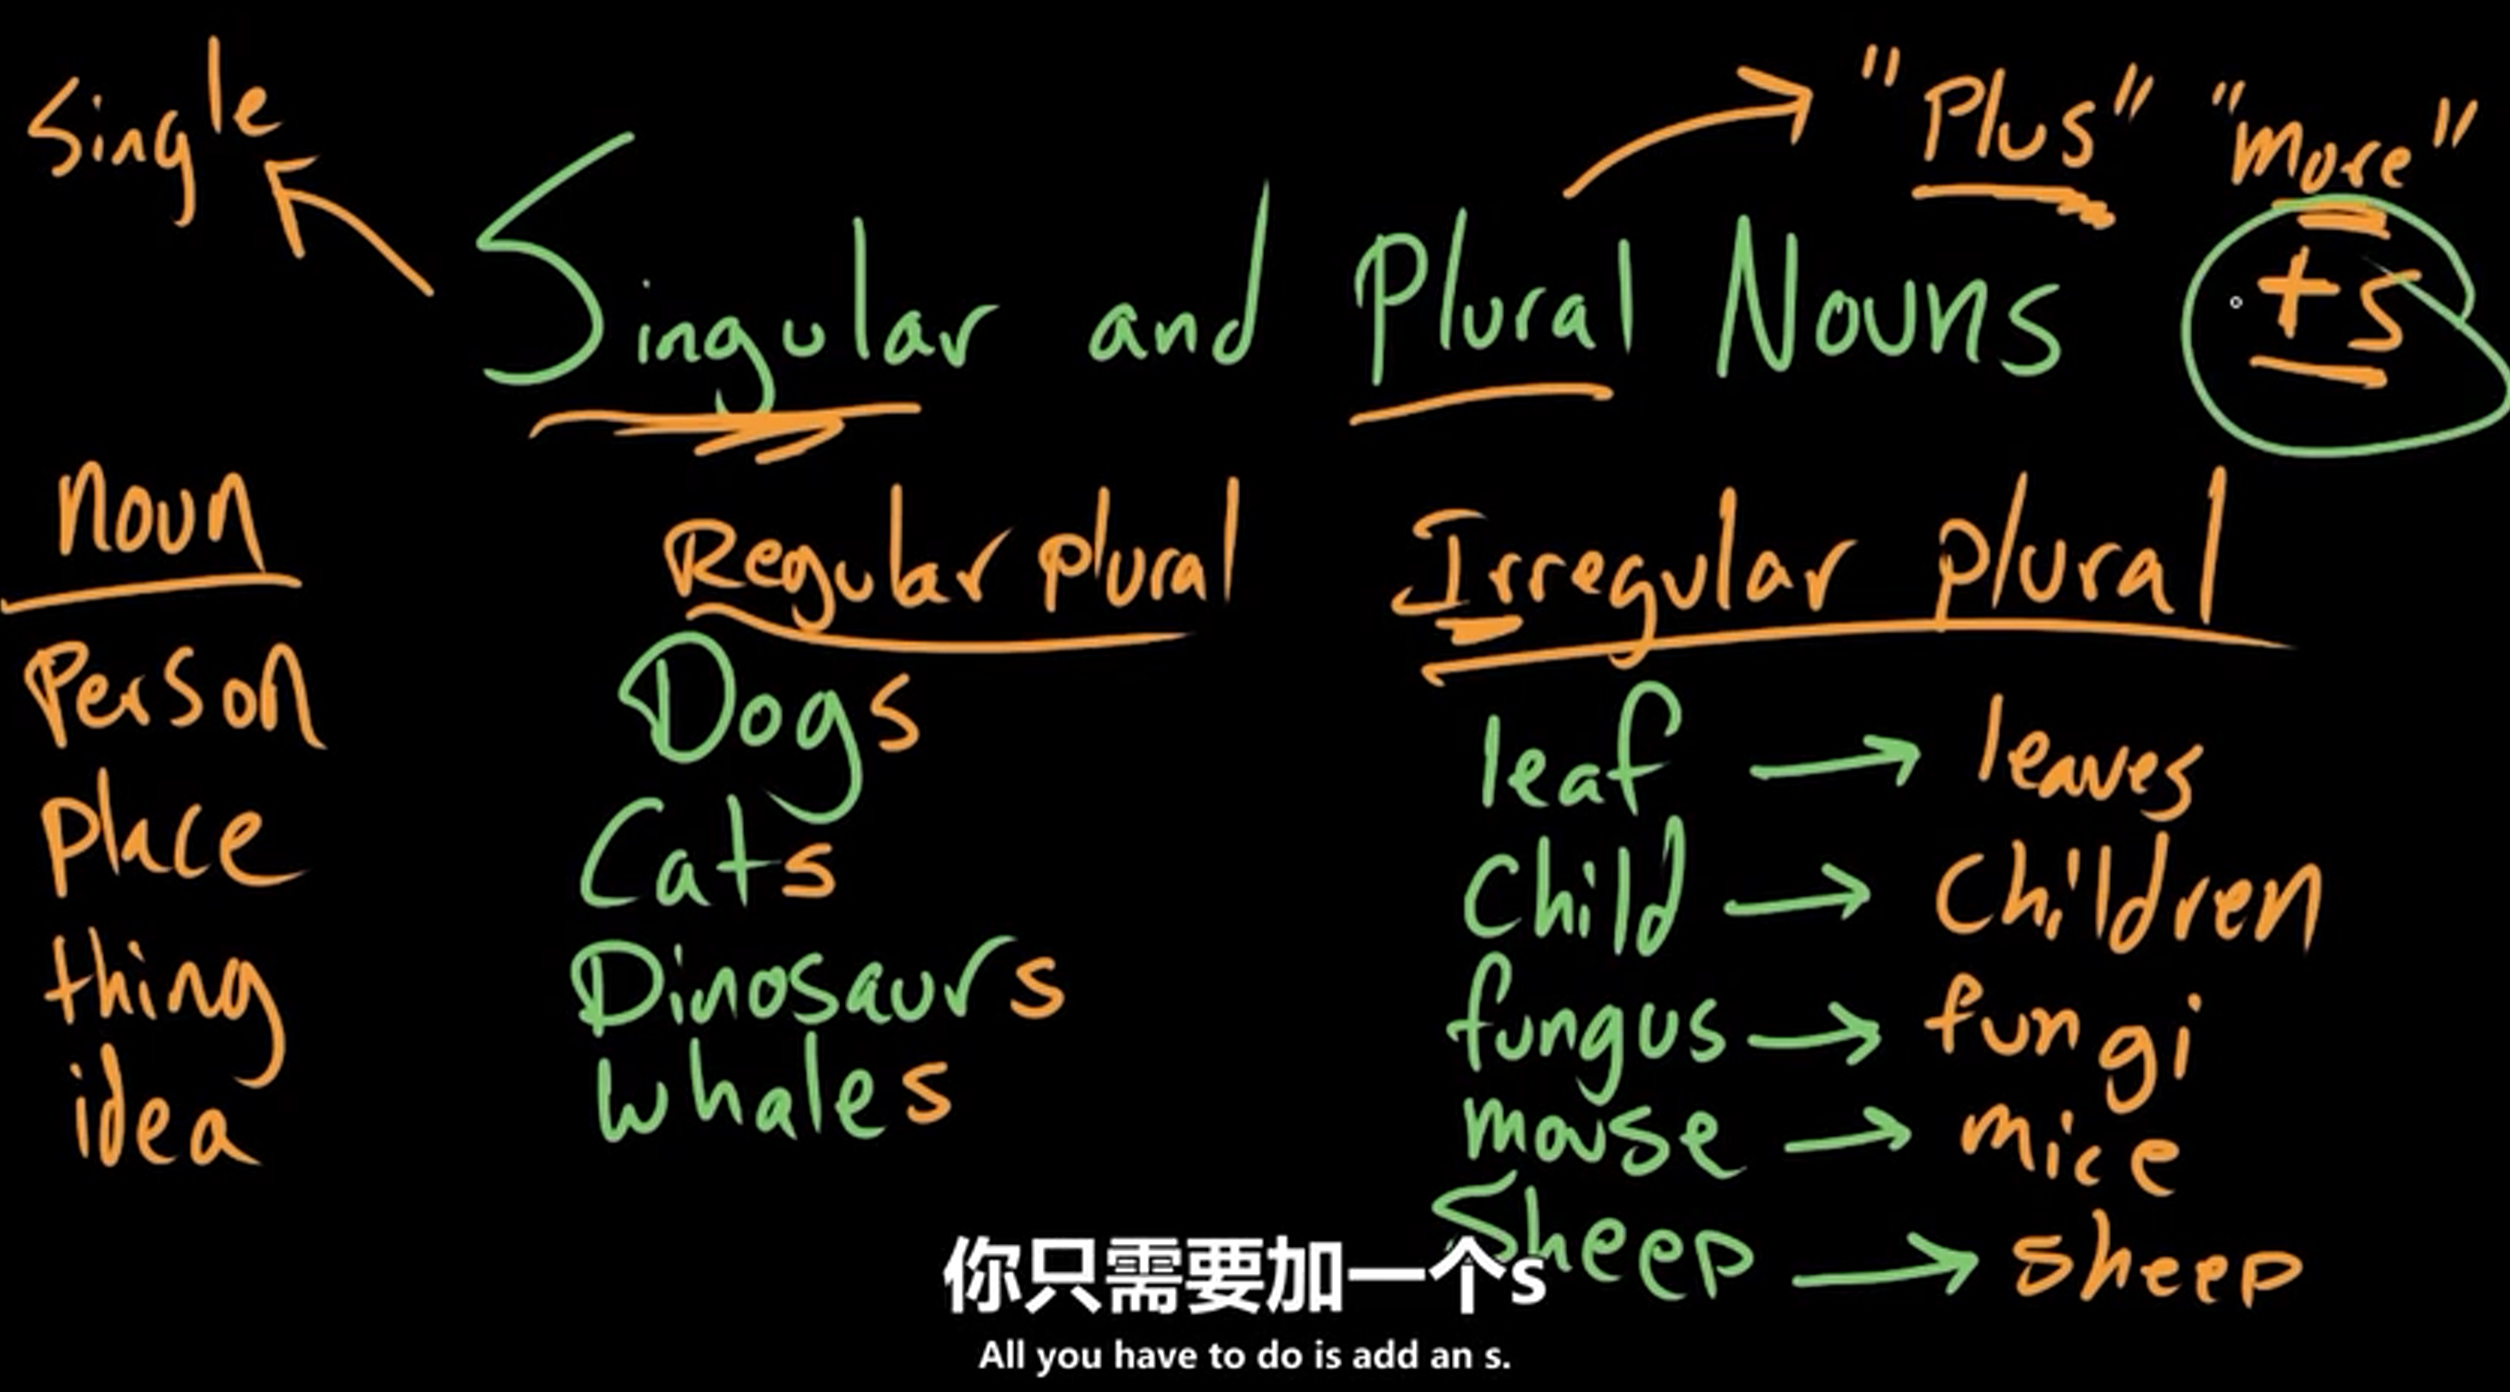 Single
"Plus" "more"
Singular and Plural Nouns
+s
noun
Person
place
thing
idea
Regular plural
Dogs
Cats
Dinosaurs
Whales
Irregular plural
leaf → leaves
Child → Children
fungus → fungi
mouse → mice
Sheep → sheep
你只需要加一个s
All you have to do is add an s.